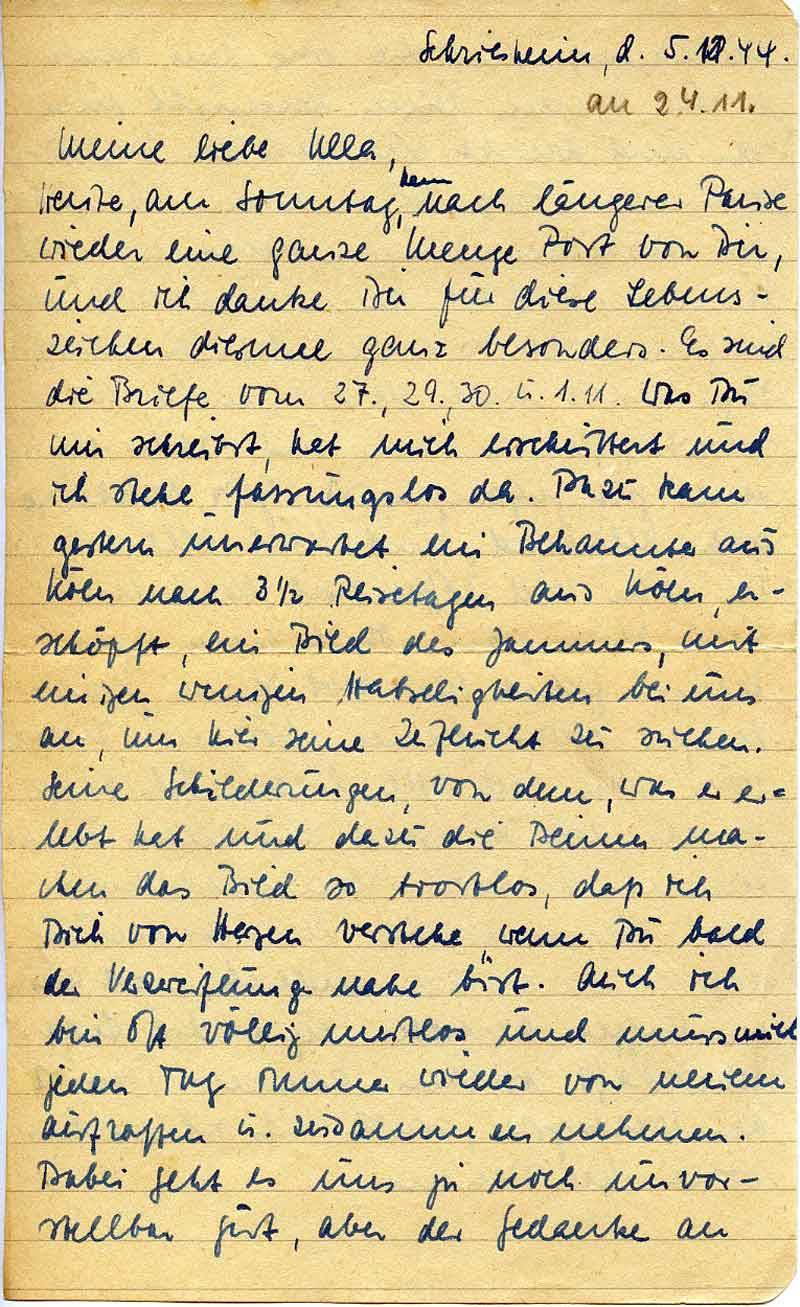 Schriesheim, d. 5.11.44.
an 24.11.
Meine liebe Ulla,
Heute, am Sonntag, kam nach längerer Pause
wieder eine ganze Menge Post von Dir,
und ich danke Dir für diese Lebens-
zeichen diesmal ganz besonders. Es sind
die Briefe vom 27., 29., 30. u. 1.11. Was Du
mir schreibst, hat mich erschüttert und
ich stehe fassungslos da. Dazu kam
gestern unerwartet ein Bekannter aus
Köln nach 3 1/2 Reisetagen aus Köln, er-
schöpft, ein Bild des Jammers, mit
einigen wenigen Habseligkeiten bei uns
an, um hier seine Zuflucht zu suchen.
Seine Schilderungen, von dem, was er er-
lebt hat und dazu die Deinen ma-
chen das Bild so trostlos, daß ich
Dich von Herzen verstehe, wenn Du bald
der Verzweiflung nahe bist. Auch ich
bin oft völlig mutlos und muss mich
jeden Tag immer wieder von neuem
aufraffen u. zusammen nehmen.
Dabei geht es uns ja noch unvor-
stellbar gut, aber der Gedanke an